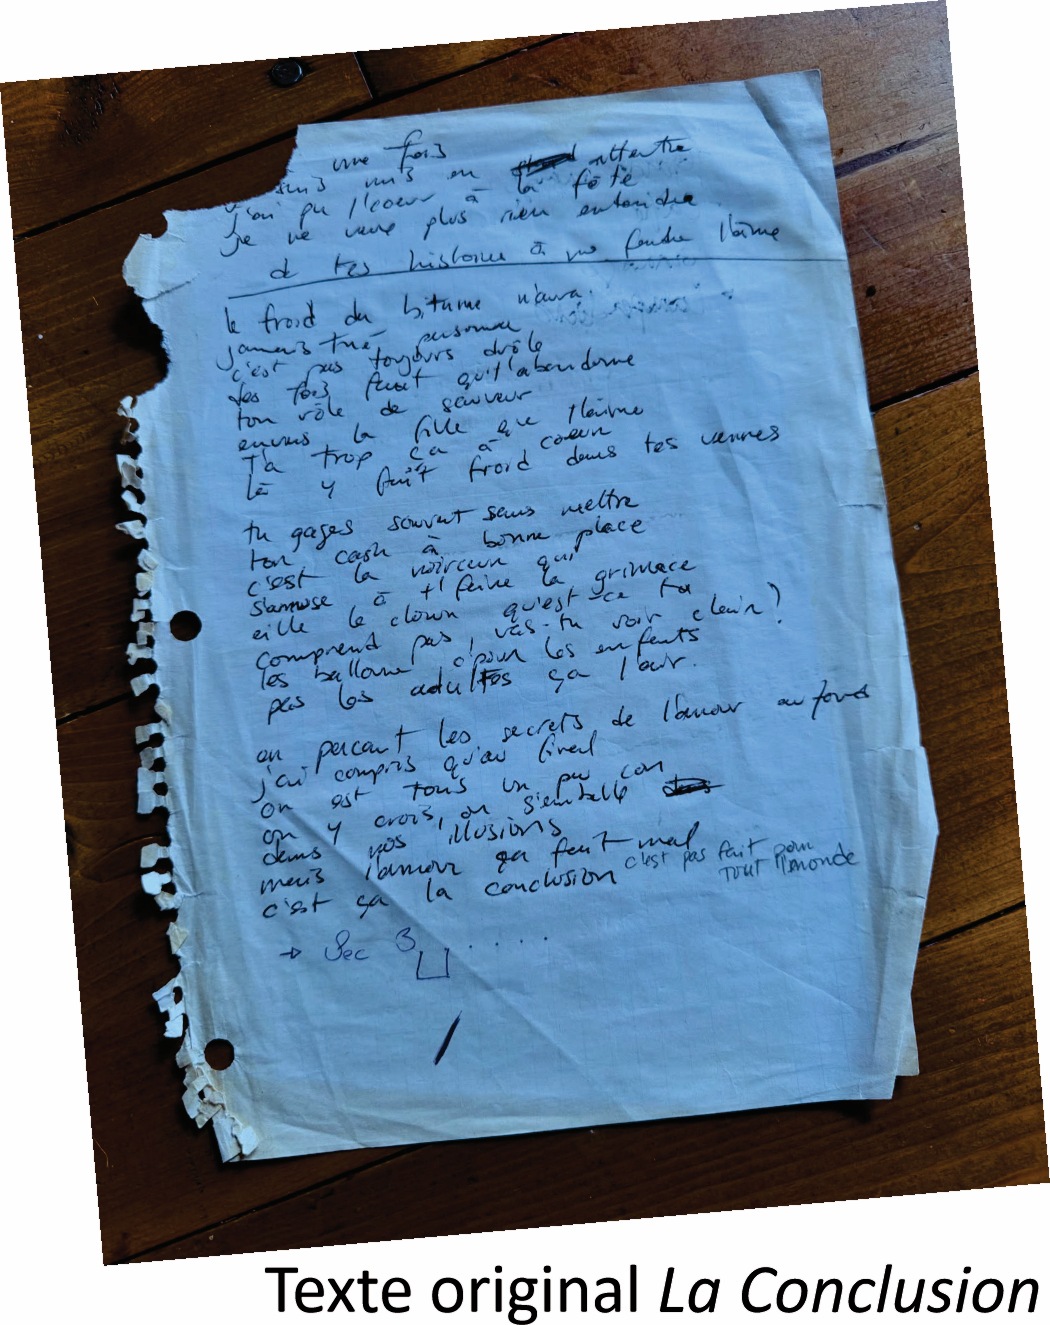 une fois
suis mis en attente
j'ai pu l'coeur à la fête
je ne veux plus rien entendre
d tes histoires à me fendre l'âme
le froid du bitume n'aura
jamais tué personne
c'est pas toujours drôle
des fois faut qu't'abandonne
ton rôle de sauveur
envers la fille que t'aime
T'a trop ça à coeur
là y fait froid dans tes veines
tu gages souvent sans mettre
ton cash à bonne place
c'est la noirceur qui
s'amuse à t'faire la grimace
eille le clown qu'est-ce tu
comprend pas, vas-tu voir clair?
les ballons c'pour les enfants
pas les adultes ça l'air.
en percant les secrets de l'amour au fond
j'ai compris qu'au final
on est tous un peu con
on y crois, on s'emballe
dans nos illusions
mais l'amour ça fait mal
c'est ça la conclusion c'est pas fait pour
TOUT l'monde
→ Sec 3 . . . . .
Texte original La Conclusion